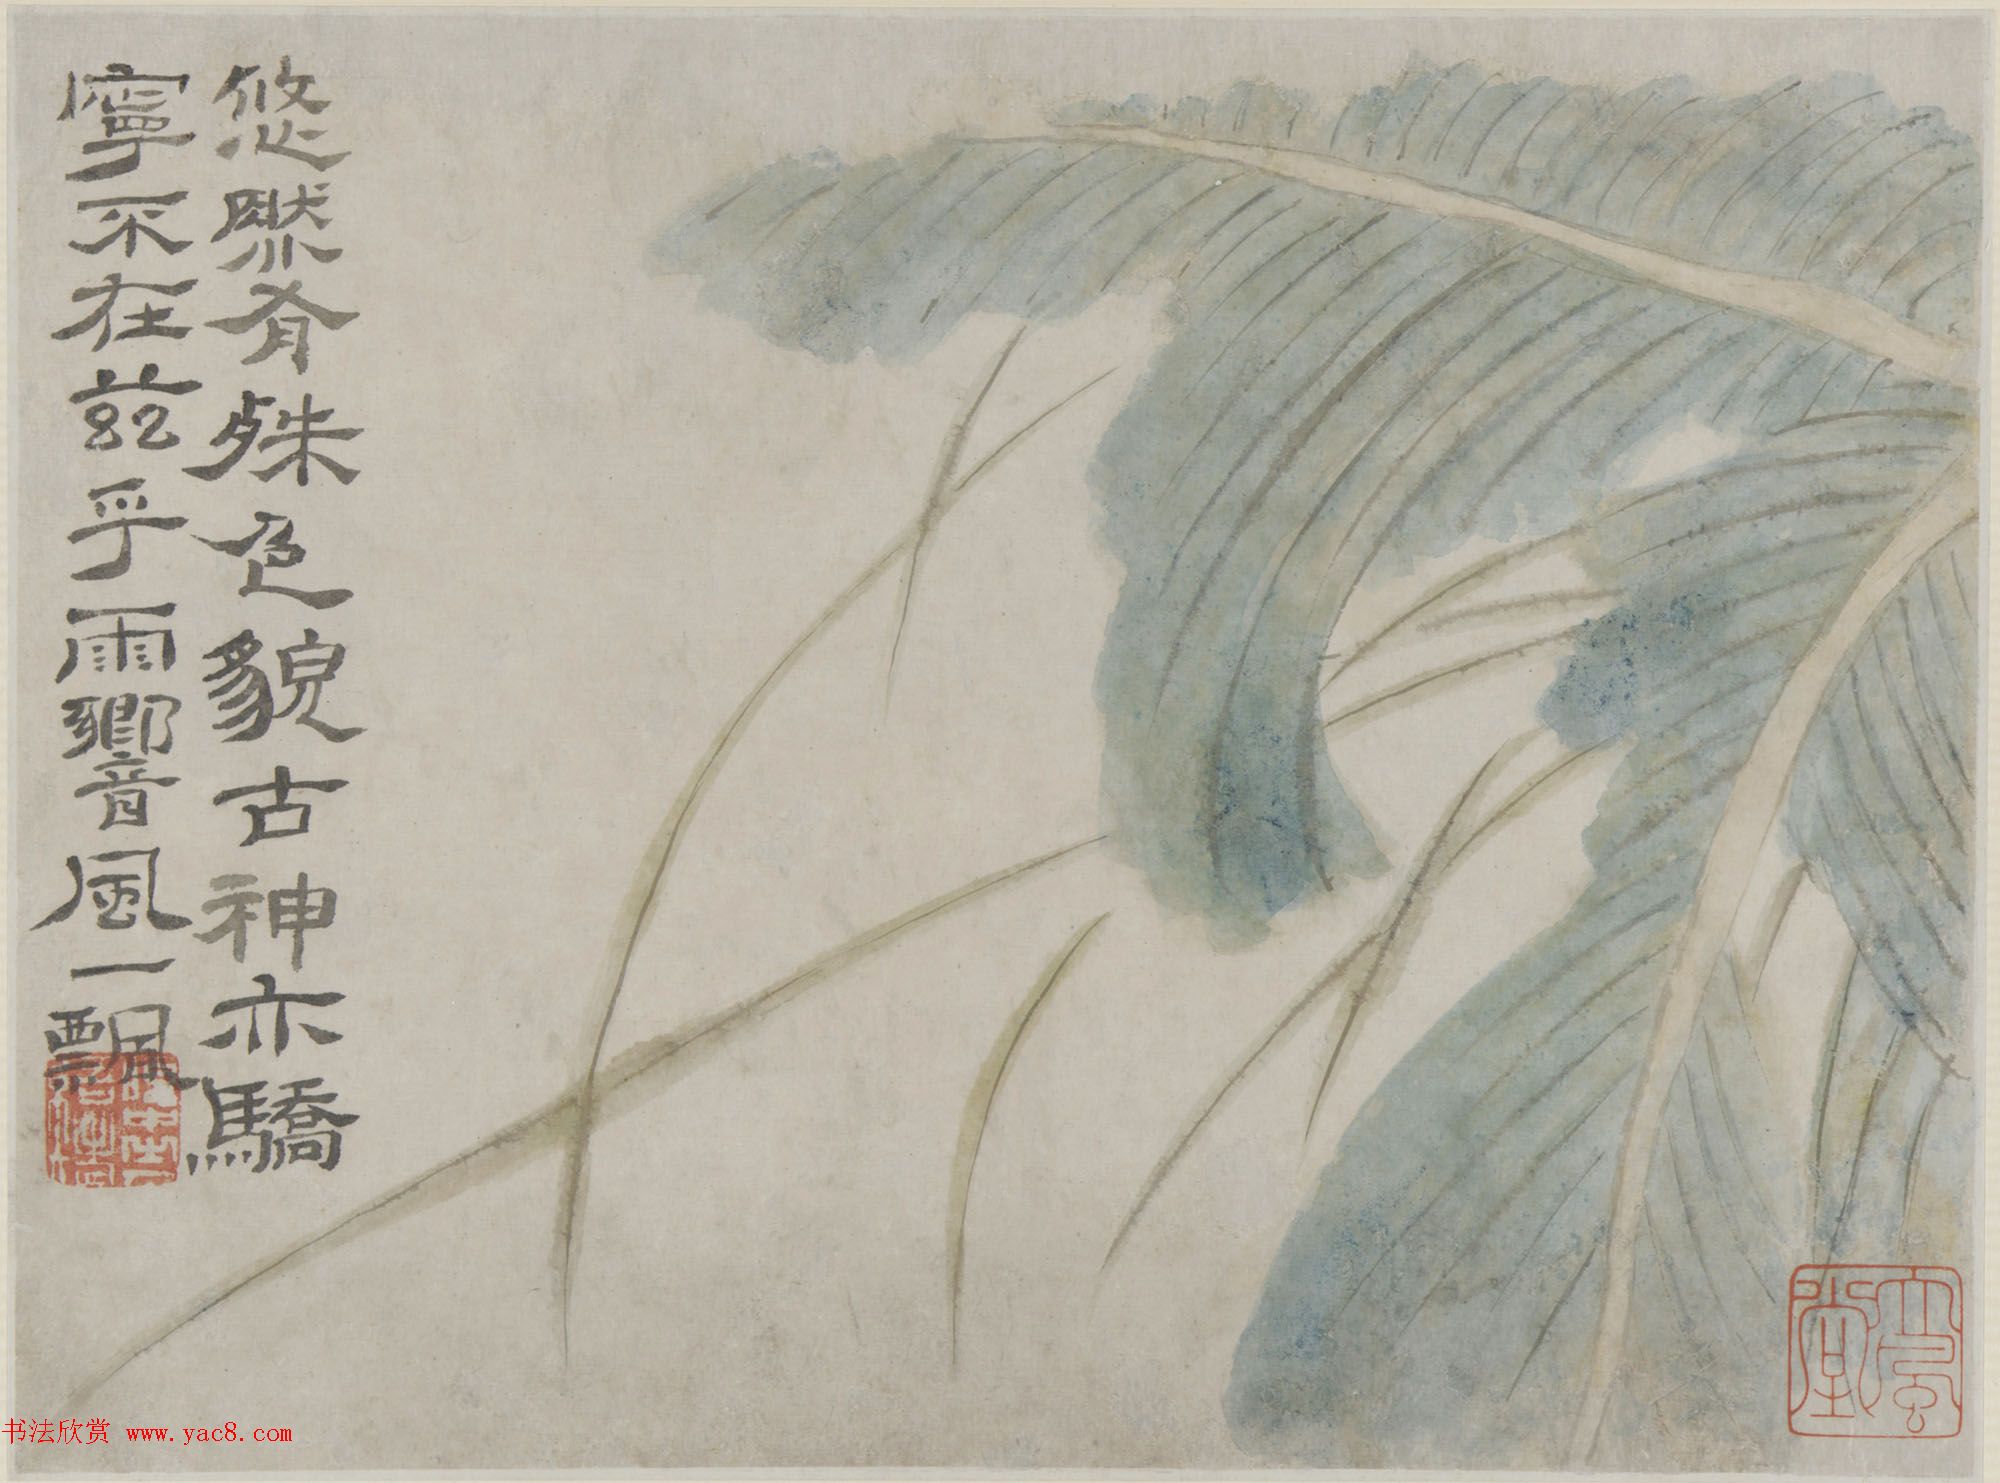 悠然有殊色貌古神亦驕
寧不在茲乎雨響風一飄
书法欣赏 www.yac8.com